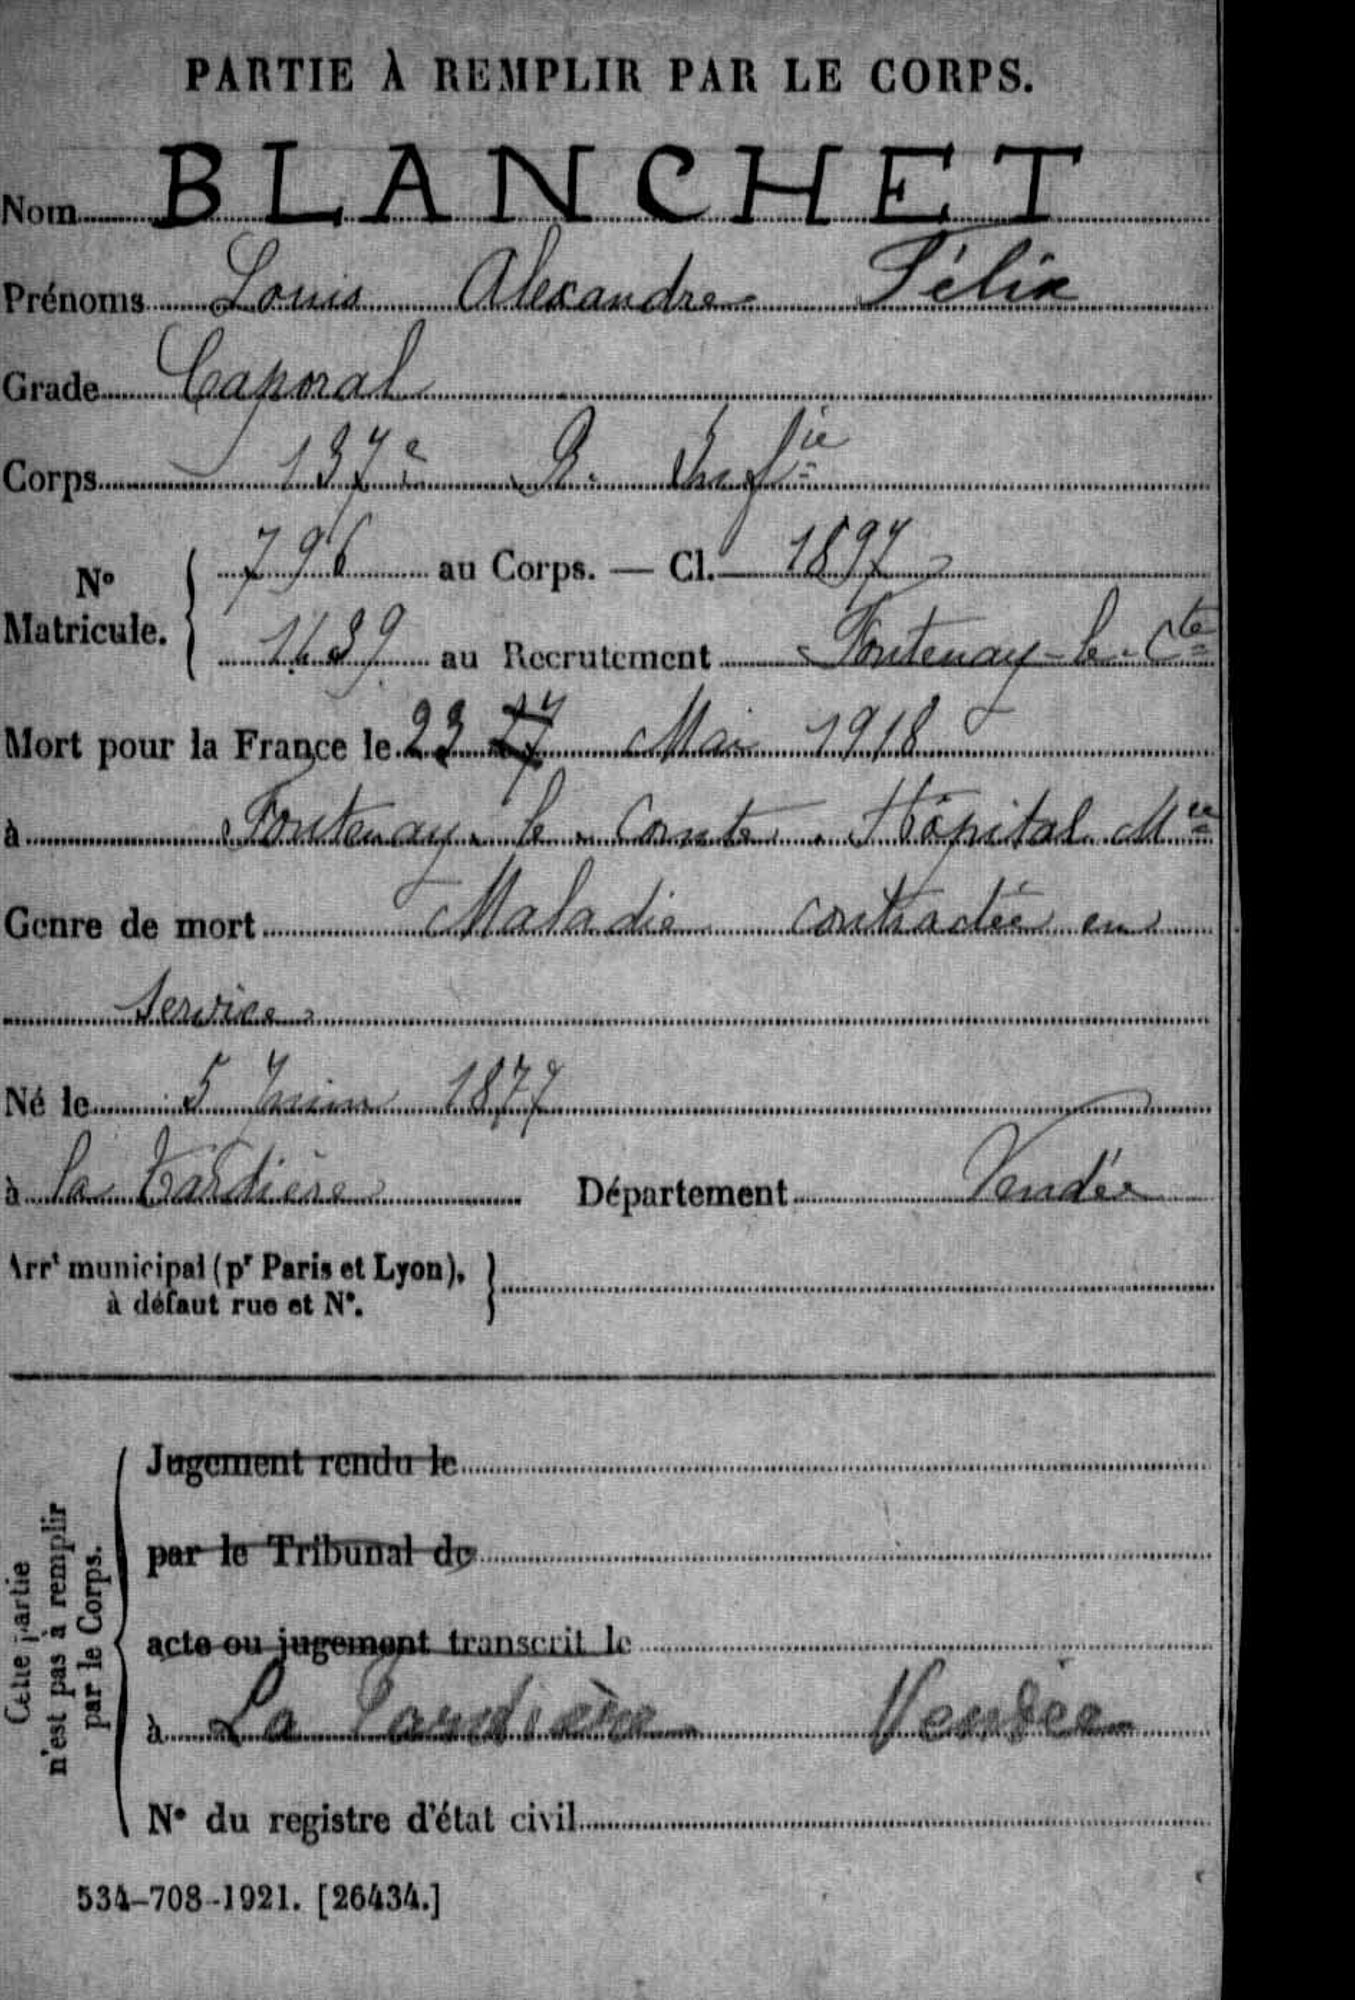 PARTIE À REMPLIR PAR LE CORPS.
Nom BLANCHET
Prénoms Louis Alexandre Félix
Grade Caporal
Corps 137e R. Infie
N° Matricule. 796 au Corps. — Cl. 1897
1439 au Recrutement Fontenay-le-Cte
Mort pour la France le 23 27 Mai 1918
à Fontenay-le-Comte Hôpital Mre
Genre de mort Maladie contractée en
service
Né le 5 Juin 1877
à la Tardière Département Vendée
Arrt municipal (pr Paris et Lyon),
à défaut rue et N°.
Cette partie
n'est pas à remplir
par le Corps.
Jugement rendu le
par le Tribunal de
acte ou jugement transcrit le
à La Tardière Vendée
N° du registre d'état civil
534-708-1921. [26434.]